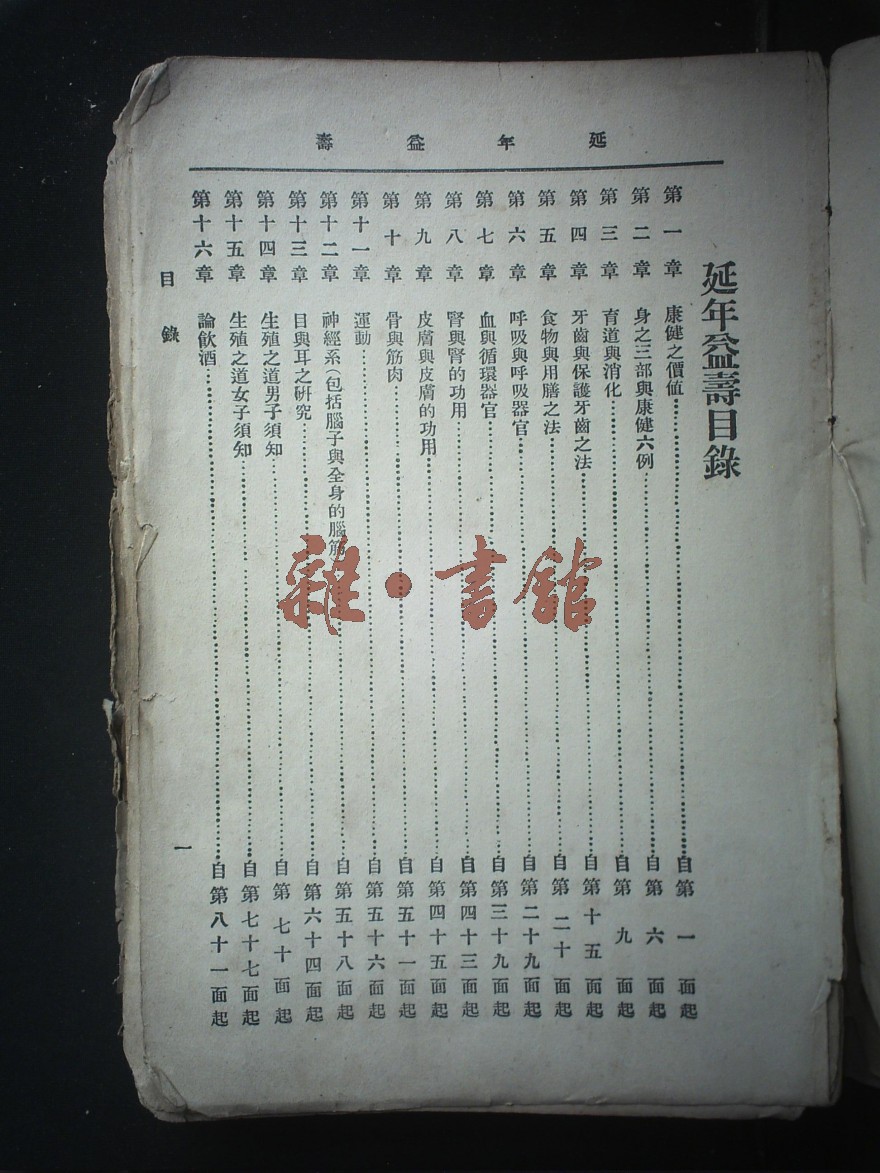 延年益壽
延年益壽目錄
第一章 康健之價値………自第一面起
第二章 身之三部與康健六例………自第六面起
第三章 育道與消化………自第九面起
第四章 牙齒與保護牙齒之法………自第十五面起
第五章 食物與用膳之法………自第二十面起
第六章 呼吸與呼吸器官………自第二十九面起
第七章 血與循環器官………自第三十九面起
第八章 腎與腎的功用………自第四十三面起
第九章 皮膚與皮膚的功用………自第四十五面起
第十章 骨與筋肉………自第五十一面起
第十一章 運動………自第五十六面起
第十二章 神經系(包括腦子與全身的腦筋………自第五十八面起
第十三章 目與耳之硏究………自第六十四面起
第十四章 生殖之道男子須知………自第七十面起
第十五章 生殖之道女子須知………自第七十七面起
第十六章 論飮酒………自第八十一面起
目錄
一
雜·書館